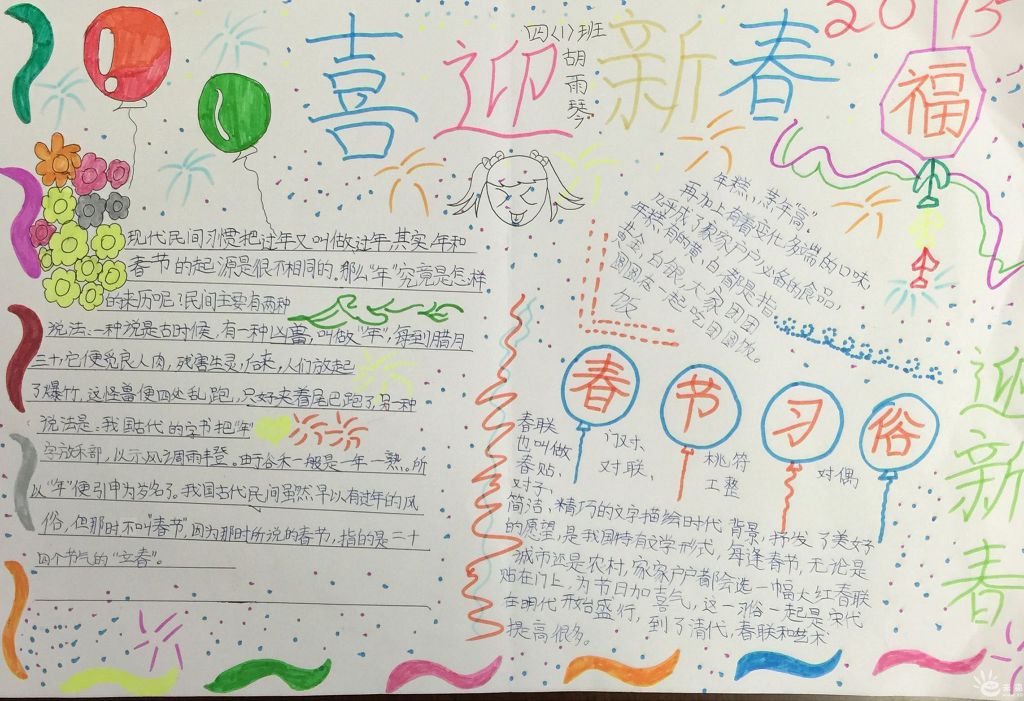 喜迎新春
四〈1〉班
胡雨琴
2015
福
现代民间习惯把过年又叫做过年,其实,年和
春节的起源是很不相同的。那么"年"究竟是怎样
的来历呢?民间主要有两种
说法:一种说是古时候,有一种凶兽,叫做"年",每到腊月
三十,它便觅良人肉,残害生灵,后来,人们放起
了爆竹,这怪兽便四处乱跑,只好夹着尾巴跑了,另一种
说法是:我国古代的字书把"年"
字放禾部,以示风调雨丰登。由于谷禾一般是一年一熟。所
以"年"便引申为岁名了。我国古代民间虽然早以有过年的风
俗,但那时不叫"春节",因为那时所说的春节,指的是二十
四个节气的"立春"。
年糕,烹年"高"。
再加上有着变化多端的口味
几乎成了家家户户必备的食品,
年糕有的黄、白都是指
黄金、白银,大家团团
圆圆在一起吃团圆饭。
饭
春节习俗
春联
也叫做
春贴、
对子、
门对、
对联、
桃符
工整
对偶
简洁,精巧的文字描绘时代背景,抒发了美好
的愿望,是我国特有文学形式,每逢春节,无论是
城市还是农村,家家户户都会选一幅大红春联
贴在门上,为节日加喜气,这一习俗一起是宋代
在明代开始盛行,到了清代,春联和艺术
提高很多。
迎新春